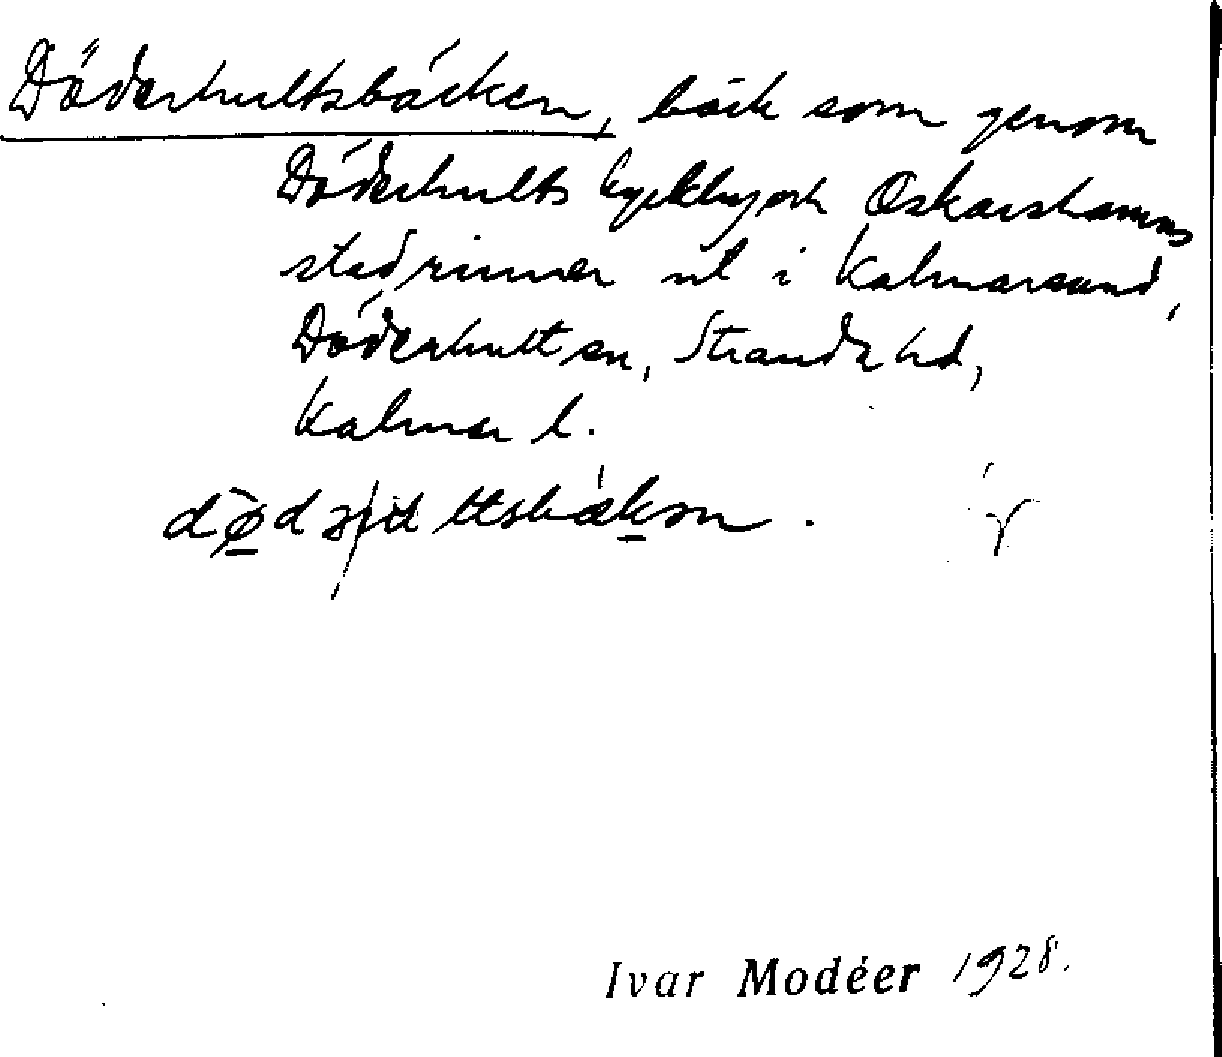 Döderhultsbäcken, bäck som genom
Döderhults kyrkby och Oskarshamns
stad rinner ut i Kalmarsund,
Döderhult sn, Stranda hd,
Kalmar l.
Ivar Modéer 1928.